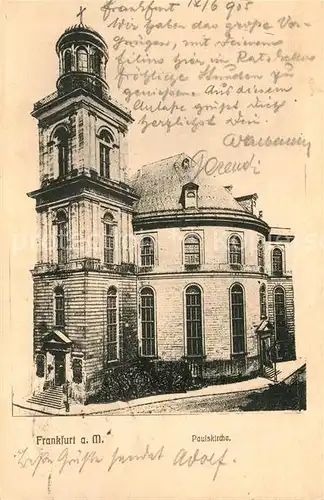 Frankfurt 12/6 905
Wir haben das große Ver-
gnügen, mit deinem
hier in Ratskeller
fröhliche Stunden zu
geniessen. Aus diesem
Anlaße grüßt dich
herzlichst dein
Frankfurt a. M.
Paulskirche.
Beste Grüße sendet Adolf.